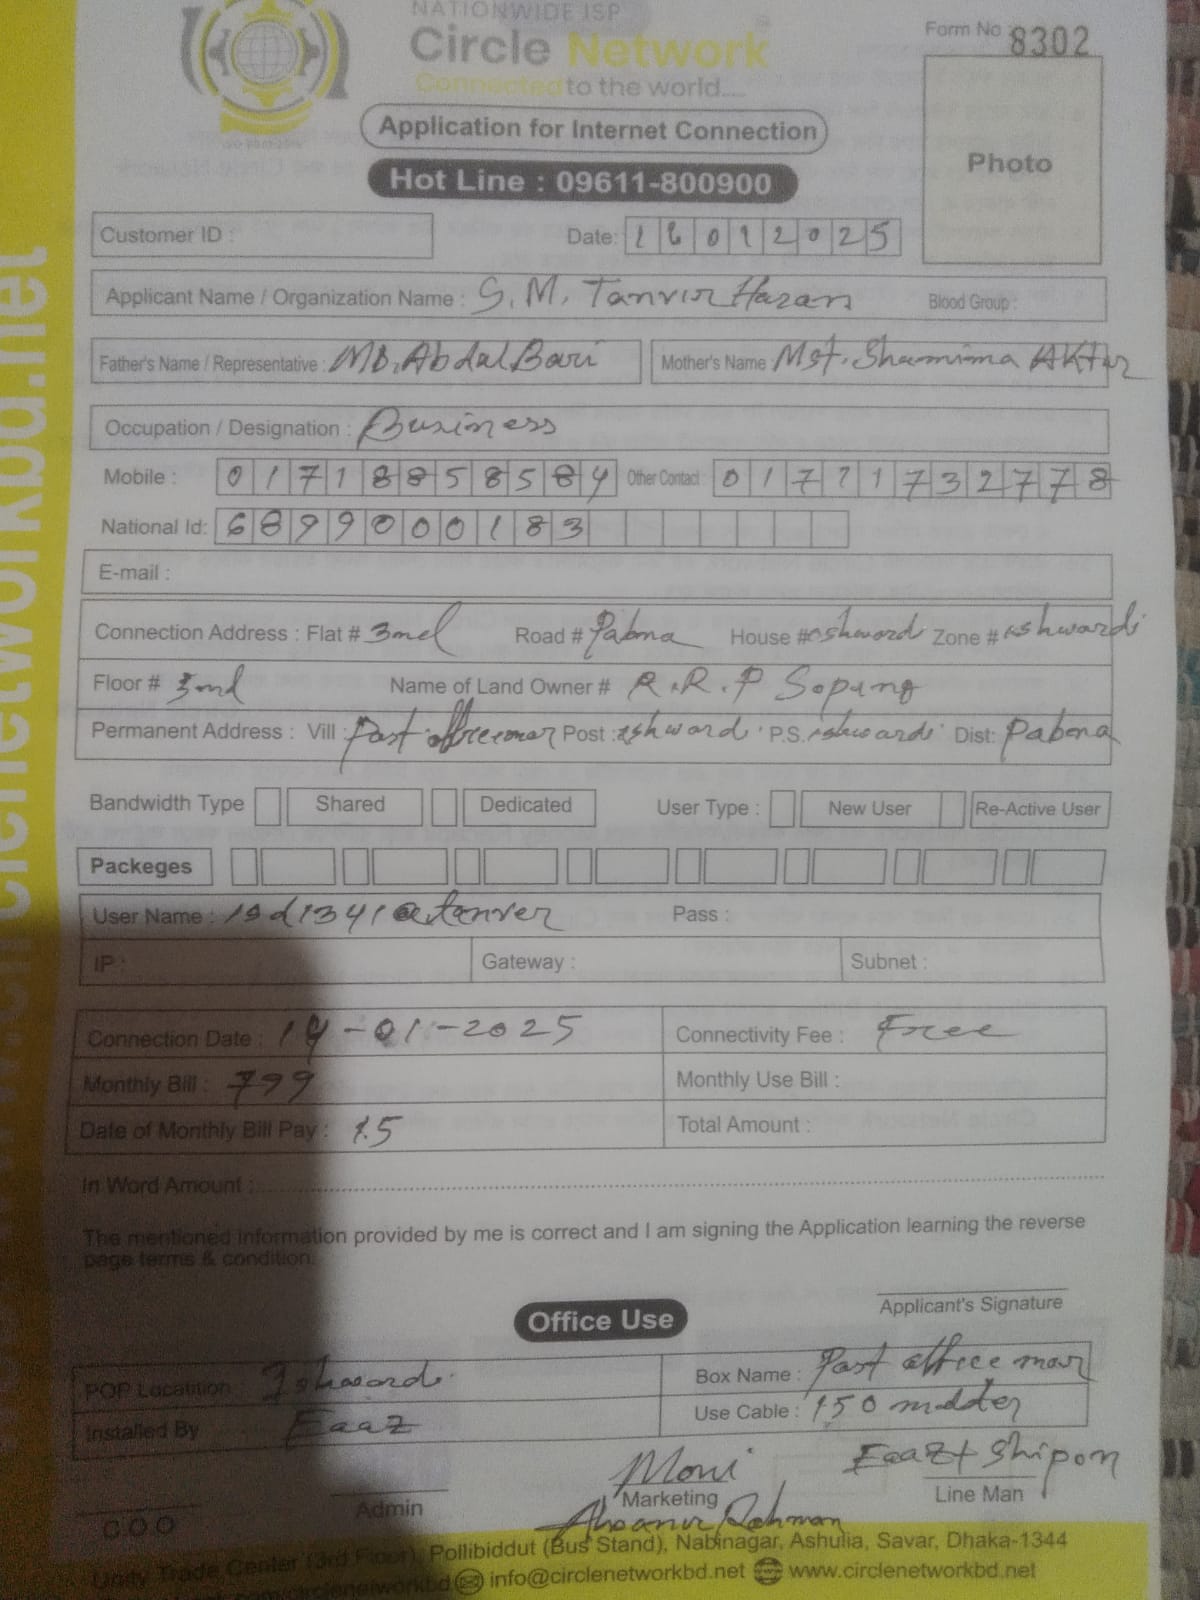 NATIONWIDE ISP
Circle Network
Connected to the world....
Form No 8302
Application for Internet Connection
Photo
Hot Line : 09611-800900
Customer ID :
Date: 16012025
Applicant Name / Organization Name : S. M. Tanvir Hasan Blood Group :
Father's Name / Representative : MD. Abdul Bari Mother's Name Mst. Shamima Aktar
Occupation / Designation : Business
Mobile : 01718858584 Other Contact : 01771732778
National Id: 6899000183
E-mail :
Connection Address : Flat # Road # Pabna House # Zone # ishwardi
Floor # Name of Land Owner # R.R.P
Permanent Address : Vill : Post office mor Post : ishwardi P.S. ishwardi Dist: Pabna
Bandwidth Type Shared Dedicated User Type : New User Re-Active User
Packeges
User Name : isd1341@tanver Pass :
IP : Gateway : Subnet :
Connection Date : 14-01-2025 Connectivity Fee : Free
Monthly Bill : 799 Monthly Use Bill :
Date of Monthly Bill Pay : 15 Total Amount :
In Word Amount :
The mentioned information provided by me is correct and I am signing the Application learning the reverse
page terms & condition.
Applicant's Signature
Office Use
POP Locatition Ishwardi Box Name : Post office mor
Installed By Eaaz Use Cable : 150
Moni Eaaz + Shipon
C.O.O Admin Marketing Line Man
Rahman
Unity Trade Center (3rd Floor), Pollibiddut (Bus Stand), Nabinagar, Ashulia, Savar, Dhaka-1344
/circlenetworkbd info@circlenetworkbd.net www.circlenetworkbd.net
www.circlenetworkbd.net